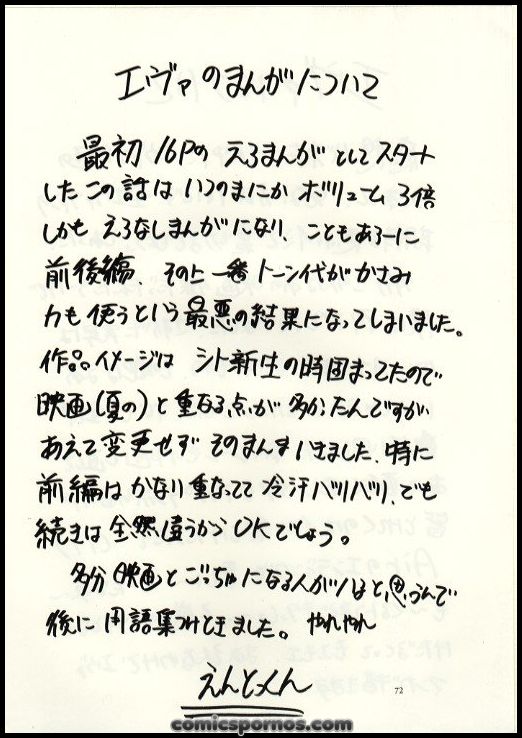 エヴァのまんがについて
最初16Pの えろまんが としてスタート
したこの話は いつのまにか ボリューム 3倍
しかも えろなしまんがになり、こともあろーに
前後編 その上 一番 トーン代がかさみ
力も使うという 最悪の結果になってしまいました。
作品イメージは シト新生の時固まってたので
映画(夏の)と重なる点が 多かったんですが
あえて変更せず そのまんま いきました、特に
前編は かなり重なってて 冷汗バリバリ、でも
続きは 全然違うから OKでしょう。
多分 映画と ごっちゃになる人がいると思うんで
後に 用語集つけときました。 やれやれ
えんとっくん
72
comicspornos.com